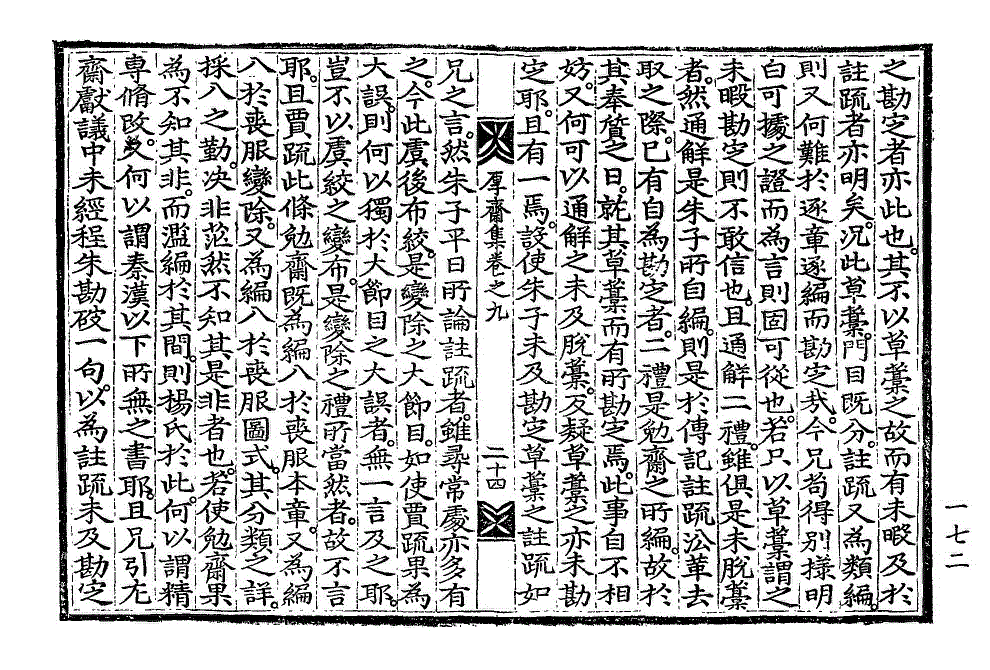 之勘定者亦此也。其不以草藁之故而有未暇及於
註疏者亦明矣。况此草藁。門目既分。註疏又為類編。
則又何難於逐章逐編而勘定㢤。今兄苟得別㨾明
白可據之證而為言則固可從也。若只以草藁謂之
未暇勘定則不敢信也。且通解二禮。雖俱是未脫藁
者。然通解是朱子所自編。則是於傳記註疏沿革去
取之際。已有自為勘定者。二禮是勉齋之所編。故於
其奉質之日。就其草藁而有所勘定焉。此事自不相
妨。又何可以通解之未及脫藁。反疑草藁之亦未勘
定耶。且有一焉。設使朱子未及勘定草藁之註疏如
厚齋集卷之九
二十四
兄之言。然朱子平日所論註疏者。雖尋常處亦多有
之。今此虞後布絞。是變除之大節目。如使賈疏果為
大誤。則何以獨於大節目之大誤者。無一言及之耶。
豈不以虞絞之變布。是變除之禮所當然者。故不言
耶。且賈疏此條勉齋既為編入於喪服本章。又為編
入於喪服變除。又為編入於喪服圖式。其分類之詳。
採入之勤。决非茫然不知其是非者也。若使勉齋果
為不知其非。而濫編於其間。則楊氏於此。何以謂精
專脩改。又何以謂秦漢以下所無之書耶。且兄引尤
齋獻議中未經程朱勘破一句。以為註疏未及勘定
一七二